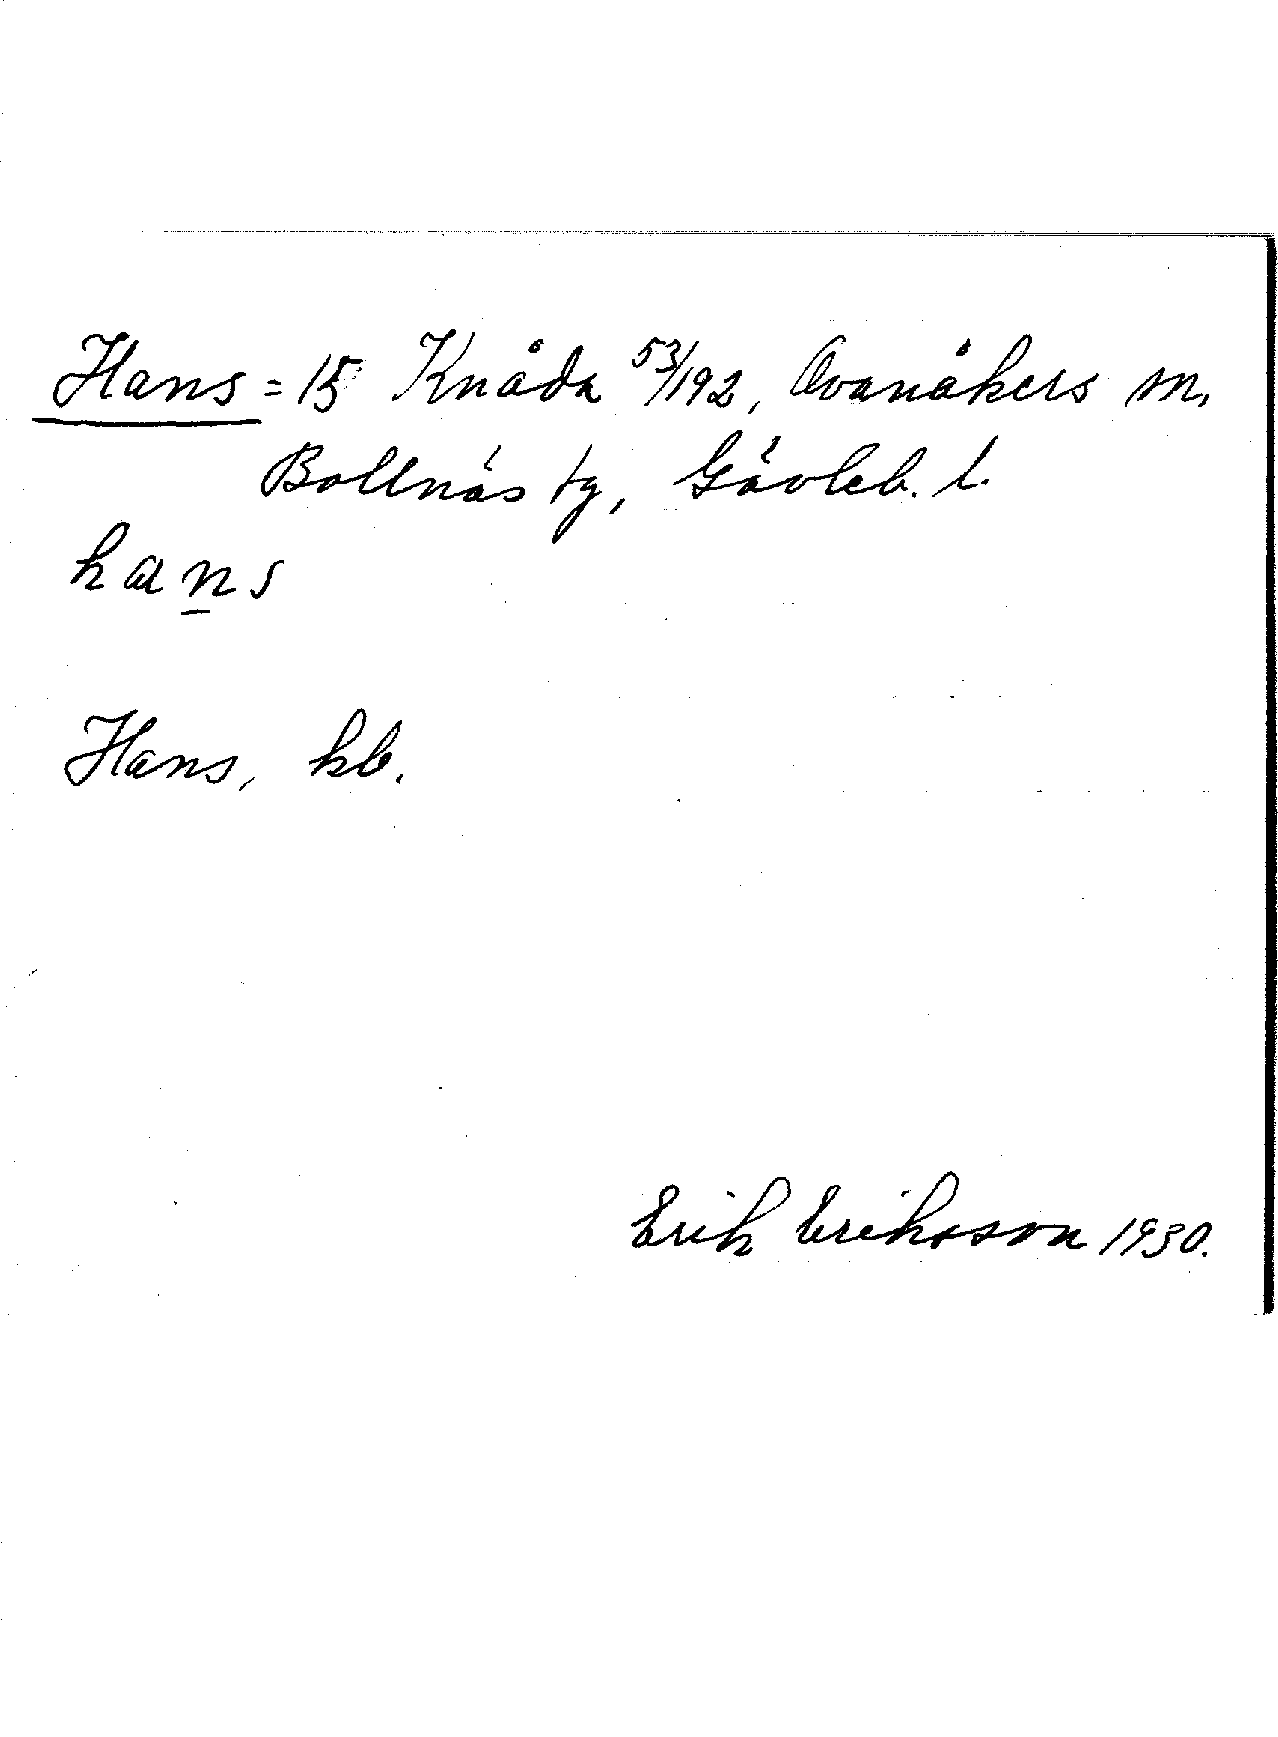 Hans = 15 Knåda 53/192, Ovanåkers sn,
Bollnäs tg, Gävleb. l.
hans
Hans, kb.
Erik Eriksson 1930.